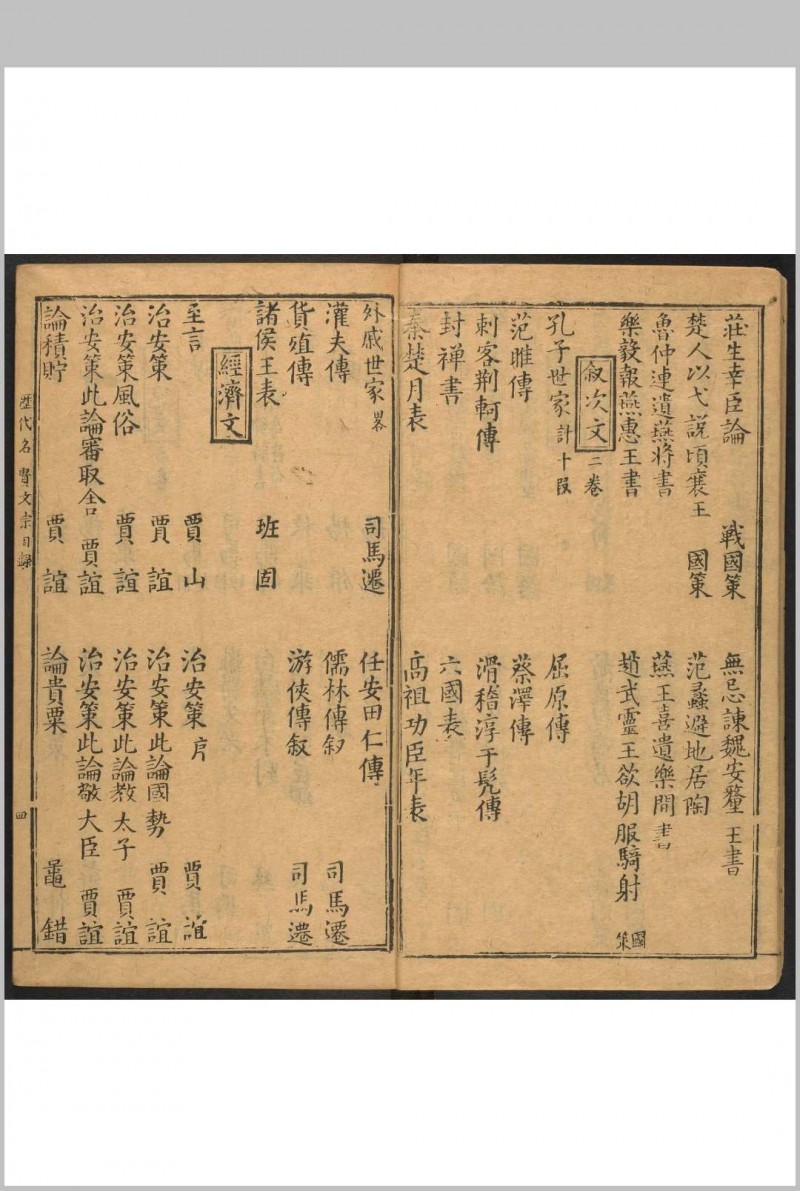 莊生幸臣論 戰國策 無忌諫魏安釐王書
楚人以弋說頃襄王 國策 范蠡避地居陶
魯仲連遺燕將書 燕王喜遺樂間書
樂毅報燕惠王書 趙武靈王欲胡服騎射 國策
敘次文 二卷
孔子世家 計十段 屈原傳
范雎傳 蔡澤傳
刺客荆軻傳 滑稽淳于髡傳
封禅書 六國表
秦楚月表 高祖功臣年表
外戚世家 畧 司馬遷 任安田仁傳
灌夫傳 儒林傳叙 司馬遷
貨殖傳 游俠傳叙 司馬遷
諸侯王表 班固
經濟文
至言 賈山 治安策序 賈誼
治安策 賈誼 治安策此論國勢 賈誼
治安策風俗 賈誼 治安策此論教太子 賈誼
治安策此論審取舍 賈誼 治安策此論敬大臣 賈誼
論積貯 賈誼 論貴粟 鼂錯
歷代名賢文宗目錄 四